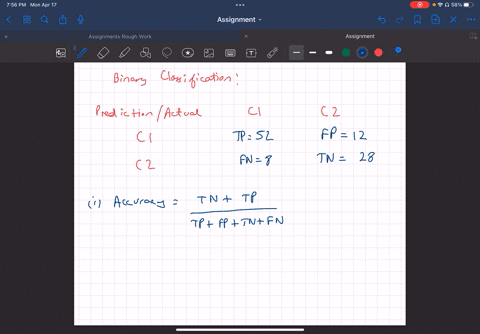 7:56 PM Mon Apr 17
58%
Assignment
Assignments Rough Work
Assignment
Binary Classification:
Prediction/Actual C1 C2
C1 TP = 52 FP = 12
C2 FN = 8 TN = 28
(i) Accuracy = TN + TP
TP + FP + TN + FN